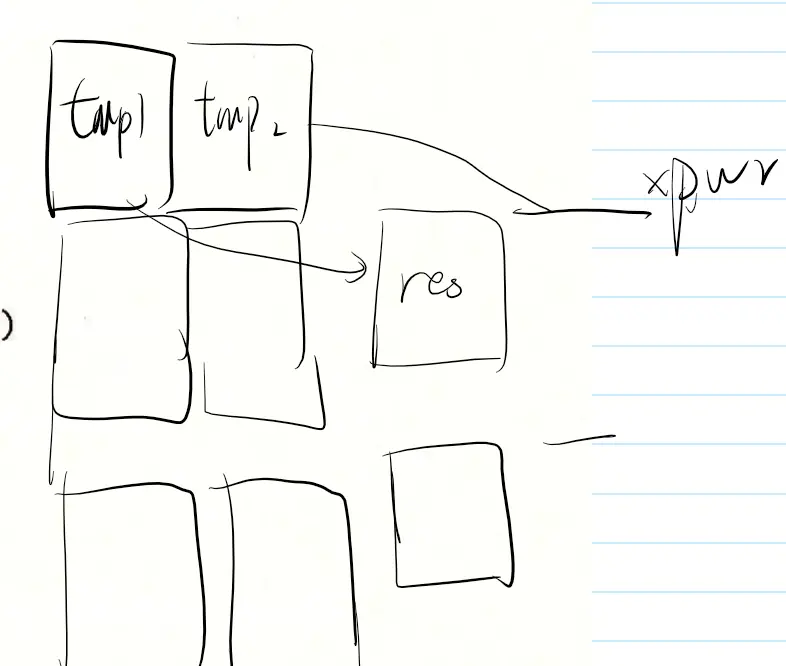 tmp1 tmp2
xpwr
res
)